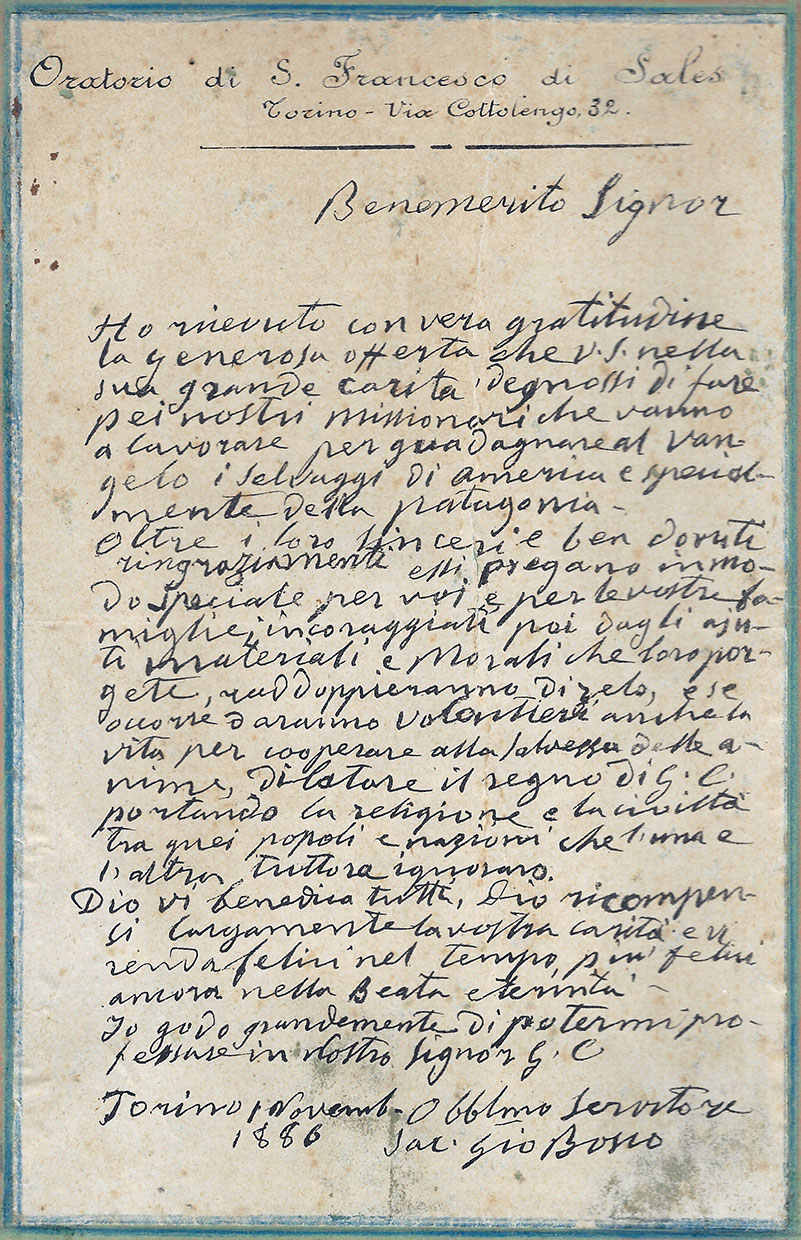 Oratorio di S. Francesco di Sales
Torino - Via Cottolengo, 32.
Benemerito Signor
Ho ricevuto con vera gratitudine
la generosa offerta che V. S. nella
sua grande carità degnossi di fare
pei nostri missionari che vanno
a lavorare per guadagnare al Van-
gelo i selvaggi di america e special-
mente della patagonia -
Oltre i loro sinceri e ben dovuti
ringraziamenti essi pregano in mo-
do speciale per voi e per le vostre fa-
miglie; incoraggiati poi dagli aju-
ti materiali e Morali che loro por-
gete, raddoppieranno di zelo, e se
occorre daranno volentieri anche la
vita per cooperare alla salvezza delle a-
nime, dilatare il regno di G. C.
portando la religione e la civiltà
tra quei popoli e nazioni che l'una e
l'altra tuttora ignorano.
Dio vi benedica tutti, Dio ricompen-
si largamente la vostra carità e vi
renda felici nel tempo, più felici
ancora nella Beata eternità -
Io godo grandemente di potermi pro-
fessare in Nostro Signor G. C
Torino 1 Novemb - Obblmo Servitore
1886 Sac. Gio Bosco